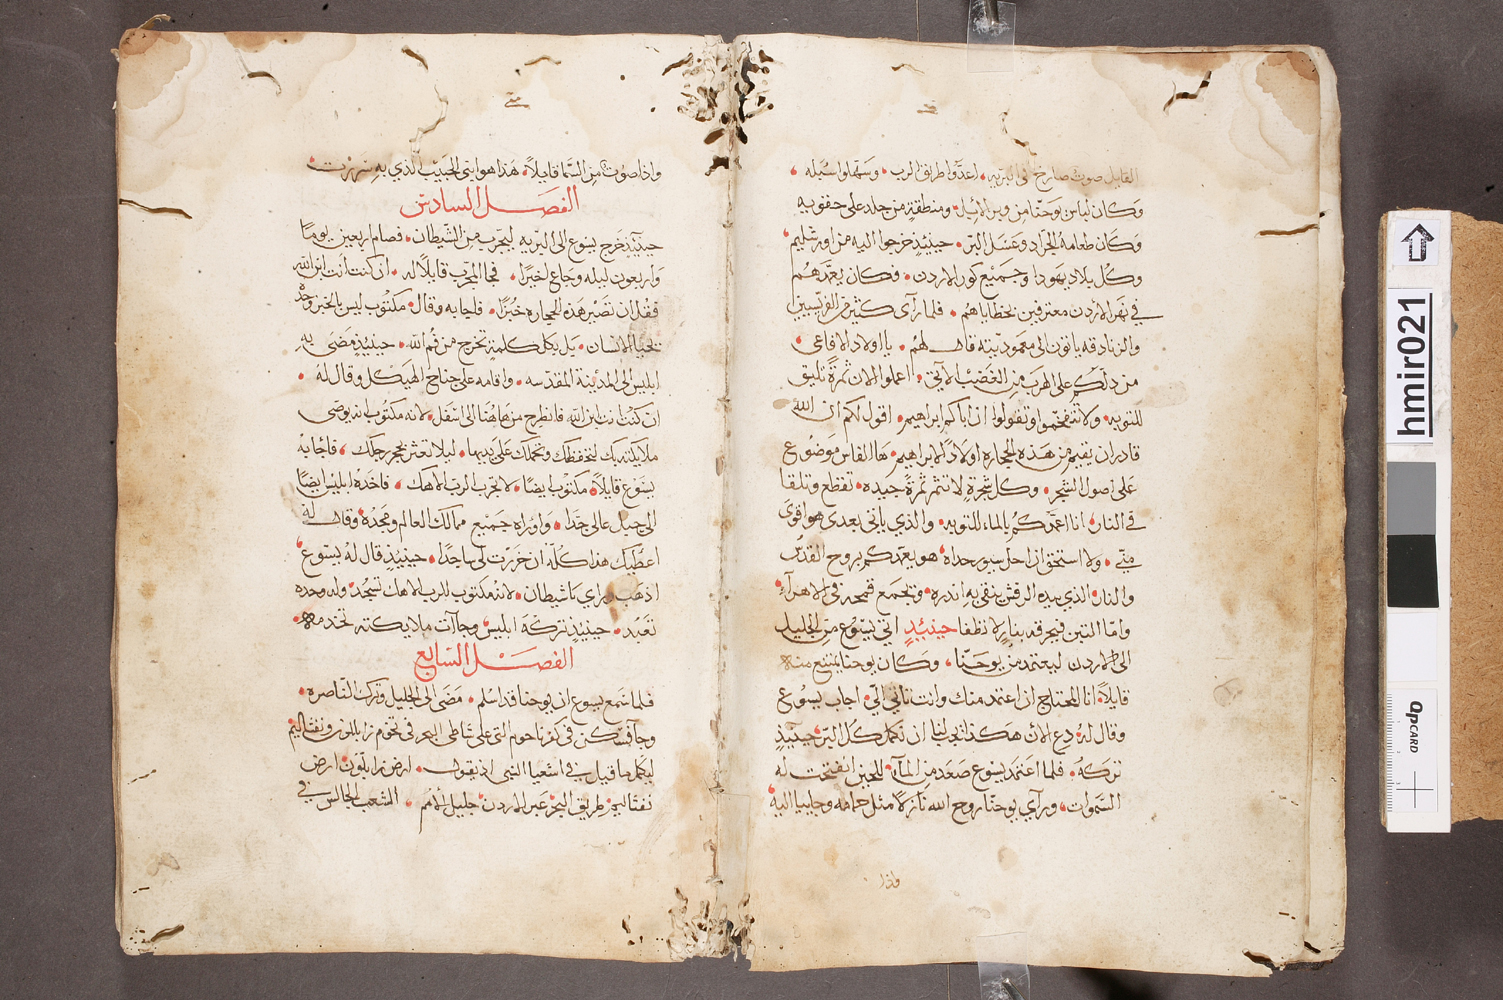 متى
القايل صوت صارخ فى البريه، اعدوا طريق الرب، وسهلوا سبله،
وكان لباس يوحنا من وبر الابل، ومنطقة من جلد على حقويه
وكان طعامه الجراد وعسل البر، حينيذ خرجوا اليه من اورشليم
وكل بلاد يهودا وجميع كور الاردن، وكان يعمدهم
في نهر الاردن معترفين بخطاياهم، فلما رآى كثير من الفريسيين
والزنادقه ياتون الى معموديته قال لهم، يا اولاد الافاعي،
من دلكم على الهرب من الغضب الآتي، اعملوا الان ثمرة تليق
للتوبه، ولا تفتخموا وتقولوا ان اباكم ابراهيم، اقول لكم ان الله
قادر ان يقيم من هذه الحجاره اولادًا لابراهيم، ها الفاس موضوع
على اصول الشجر، وكل شجرة لا تثمر ثمرة جيده، تقطع وتلقا
في النار، انا اعمدكم بالماء للتوبه، والذي ياتي بعدى هو اقوى
مني، ولا استحق ان احل سيور حداه، هو يعمدكم بروح القدس
والنار، الذي بيده الرفش ينقي به اندره، ويجمع قمحه في الاهرآء،
واما التبن فيحرقه بنار لا تطفا حينيئد اتى يسوع من الجليل
الى الاردن ليعتمد من يوحنا، وكان يوحنا يمتنع منه
قايلاً، انا المحتاج ان اعتمد منك وانت تاتي الي، اجاب يسوع
وقال له، دع الان هكذا يجب لنا ان نكمل كل البر، حينيذ
تركه، فلما اعتمد يسوع صعد من المآء، للحين انفتحت له
السموات، ورآي يوحنا روح الله نازلاً مثل حمامه وجاييا اليه،
واذا
متى
واذا صوت من السما قايلاً، هذا هو ابني الحبيب الذي به سررت،
الفصل السادس
حينيذ خرج يسوع الى البريه ليجرب من الشيطان، فصام اربعين يومًا
واربعون ليله وجاع اخيرًا، فجا المجرب قايلاً له، ان كنت انت ابن الله
فقل ان تصير هذه الحجاره خبزًا، فاجابه وقال، مكتوب ليس بالخبز وحده
يحيا الانسان، بل بكل كلمة تخرج من فم الله، حينيذ مضى به
ابليس الى المدينة المقدسه، واقامه على جناح الهيكل وقال له،
ان كنت انت ابن الله، فانطرح من هاهنا الى اسفل، لانه مكتوب انه يوصى
ملايكته بك ليحفظك وتحملك على يديها، ليلا تعثر بحجر رجلك، فاجابه
يسوع قايلاً، مكتوب ايضًا، لا تجرب الرب الاهك، فاخده ابليس ايضًا
الى جبل عالى جدًا، واوراه جميع ممالك العالم ومجده، وقال له
اعطيك هذا كله ان خررت لى ساجدًا، حينيذ قال له يسوع،
اذهب وراي يا شيطان، لانه مكتوب للرب الاهك تسجد، وله وحده
تعبد، حينيذ تركه ابليس، وجاآت ملايكته تخدمه،
الفصل السابع
فلما سمع يسوع ان يوحنا قد اسلم، مضى الى الجليل وترك الناصره،
وجا فسكن في كفرناحوم التى على شاطى البحر في تخوم زابلون ونفتاليم
ليكمل ما قيل في اشعيا النبى اذ يقول، ارض زابلون، ارض
نفتاليم، طريق البحر، عبر الاردن، جليل الامم، الشعب الجالس في
hmir021
OpCARD